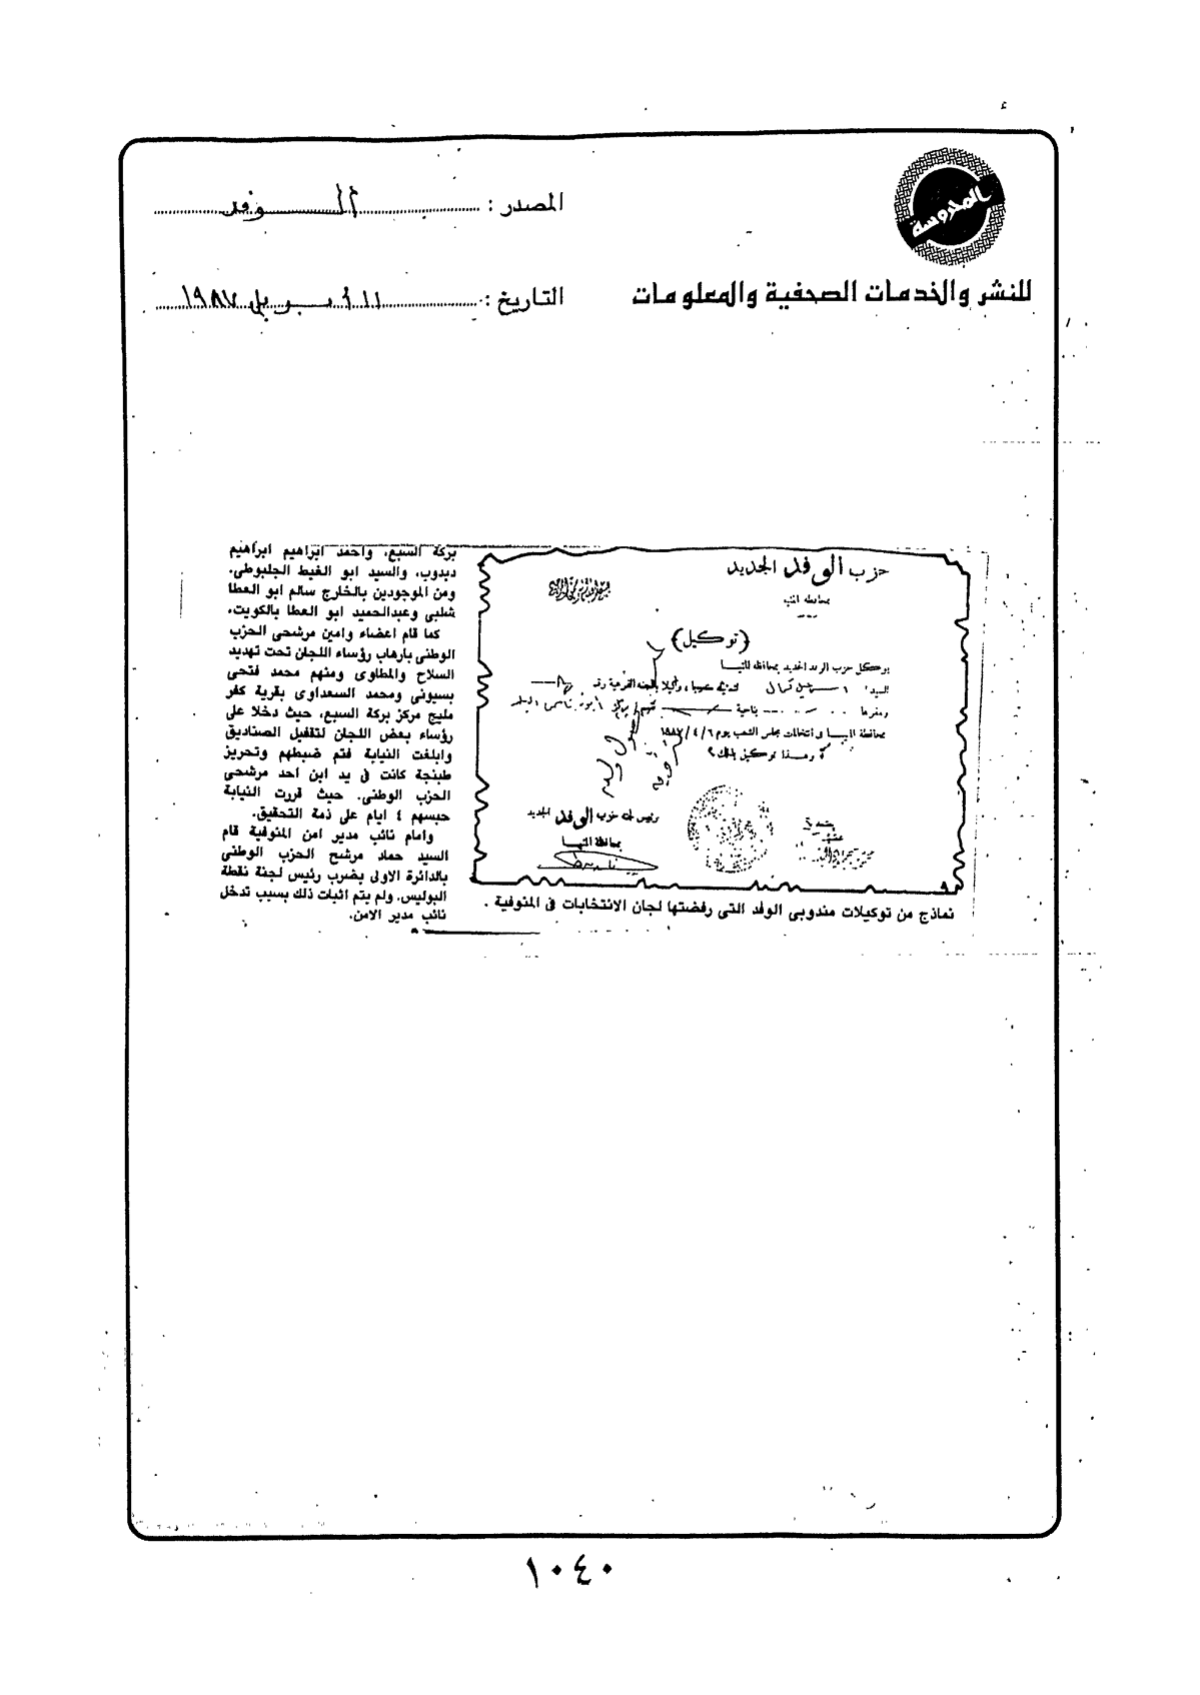 المحروسة
المصدر : الوفد
للنشر والخدمات الصحفية والمعلومات
التاريخ : ١١ أبريل ١٩٨٧
حزب الوفد الجديد
(توكيل)
يوم ١٩٨٧/٤/٦
رئيس لجنة حزب الوفد الجديد
نماذج من توكيلات مندوبى الوفد التى رفضتها لجان الانتخابات فى المنوفية .
بركة السبع، واحمد ابراهيم ابراهيم
ديدوب، والسيد ابو الغيط الجلبوطى.
ومن الموجودين بالخارج سالم ابو العطا
شلبى وعبدالحميد ابو العطا بالكويت.
كما قام اعضاء وامين مرشحى الحزب
الوطنى بارهاب رؤساء اللجان تحت تهديد
السلاح والمطاوى ومنهم محمد فتحى
بسيونى ومحمد السعداوى بقرية كفر
مليج مركز بركة السبع، حيث دخلا على
رؤساء بعض اللجان لتقفيل الصناديق
وابلغت النيابة فتم ضبطهم وتحريز
طبنجة كانت فى يد ابن احد مرشحى
الحزب الوطنى. حيث قررت النيابة
حبسهم ٤ ايام على ذمة التحقيق.
وامام نائب مدير امن المنوفية قام
السيد حماد مرشح الحزب الوطنى
بالدائرة الاولى بضرب رئيس لجنة نقطة
البوليس. ولم يتم اثبات ذلك بسبب تدخل
نائب مدير الامن.
١٠٤٠